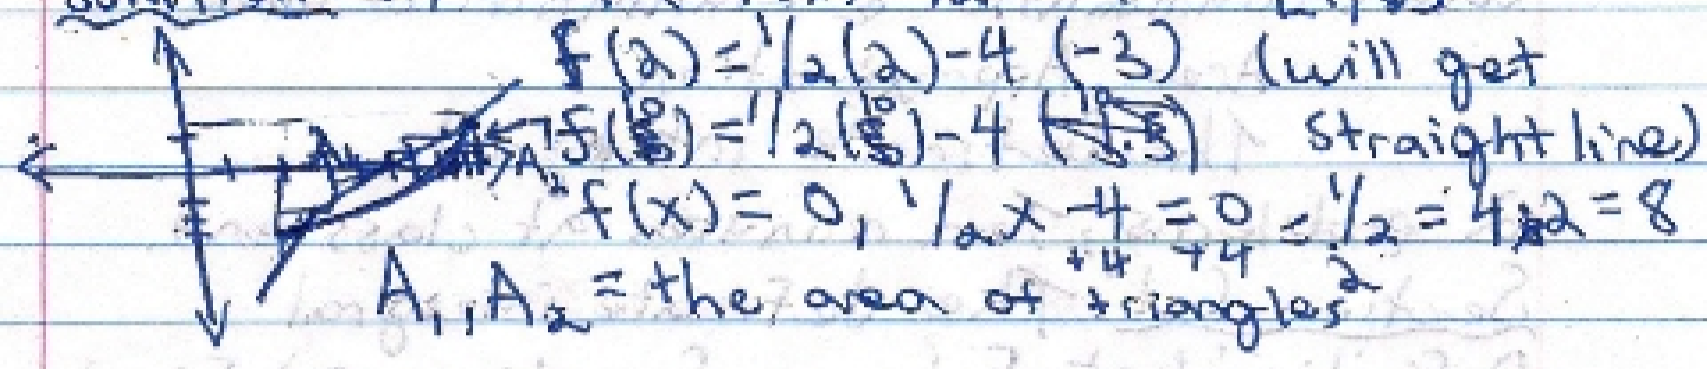 f(2) = 1/2(2)-4 (-3) (will get
f(10) = 1/2(10)-4 straight line)
A2
f(x) = 0, 1/2x -4 = 0 = 1/2 = 4x2 = 8
+4 +4 2
A1, A2 = the area of triangles